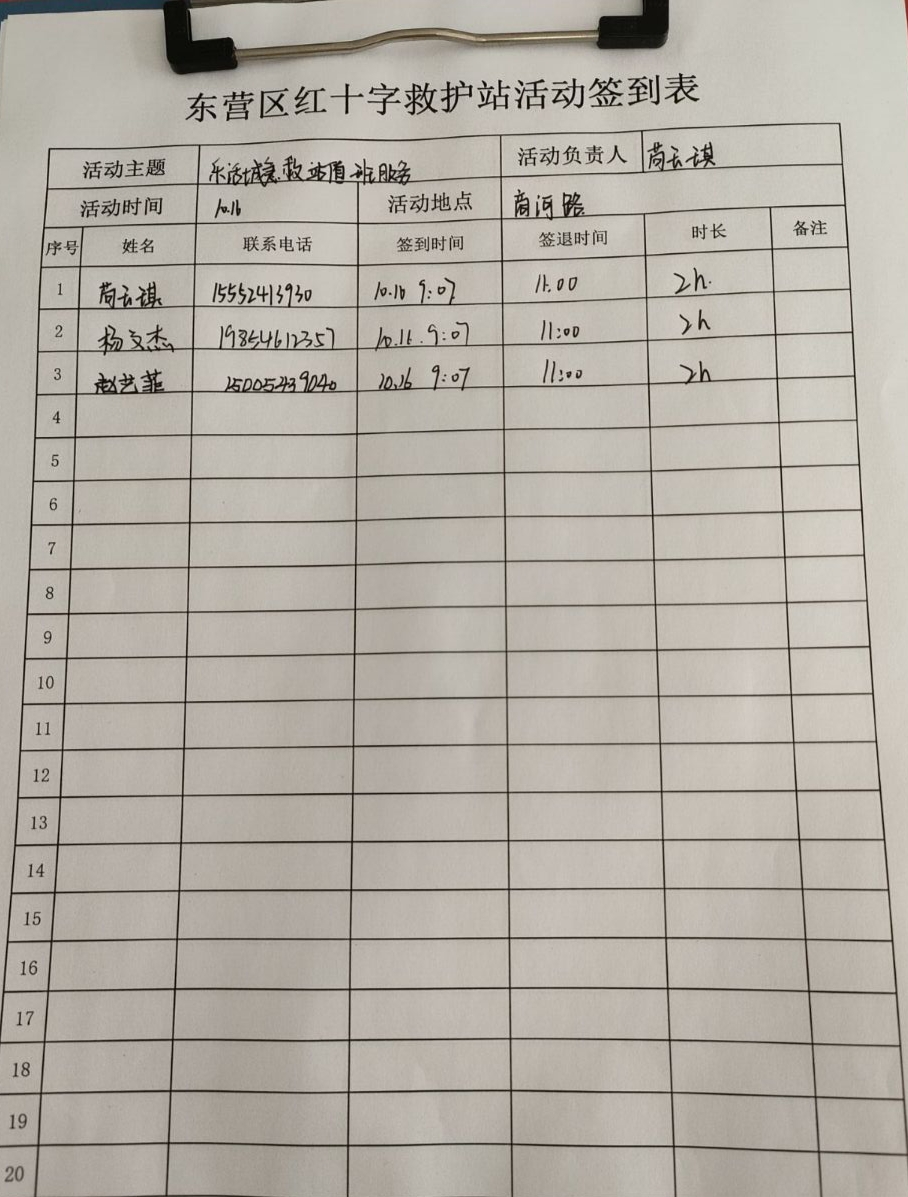 东营区红十字救护站活动签到表
活动主题 乐活城急救站值站服务 活动负责人 苘云琪
活动时间 10.16 活动地点 商河路
序号 姓名 联系电话 签到时间 签退时间 时长 备注
1 苘云琪 15552413930 10.16 9:07 11.00 2h.
2 杨文杰 19854612357 10.16. 9:07 11:00 2h
3 赵艺菲 15005439040 10.16 9:07 11:00 2h
4
5
6
7
8
9
10
11
12
13
14
15
16
17
18
19
20